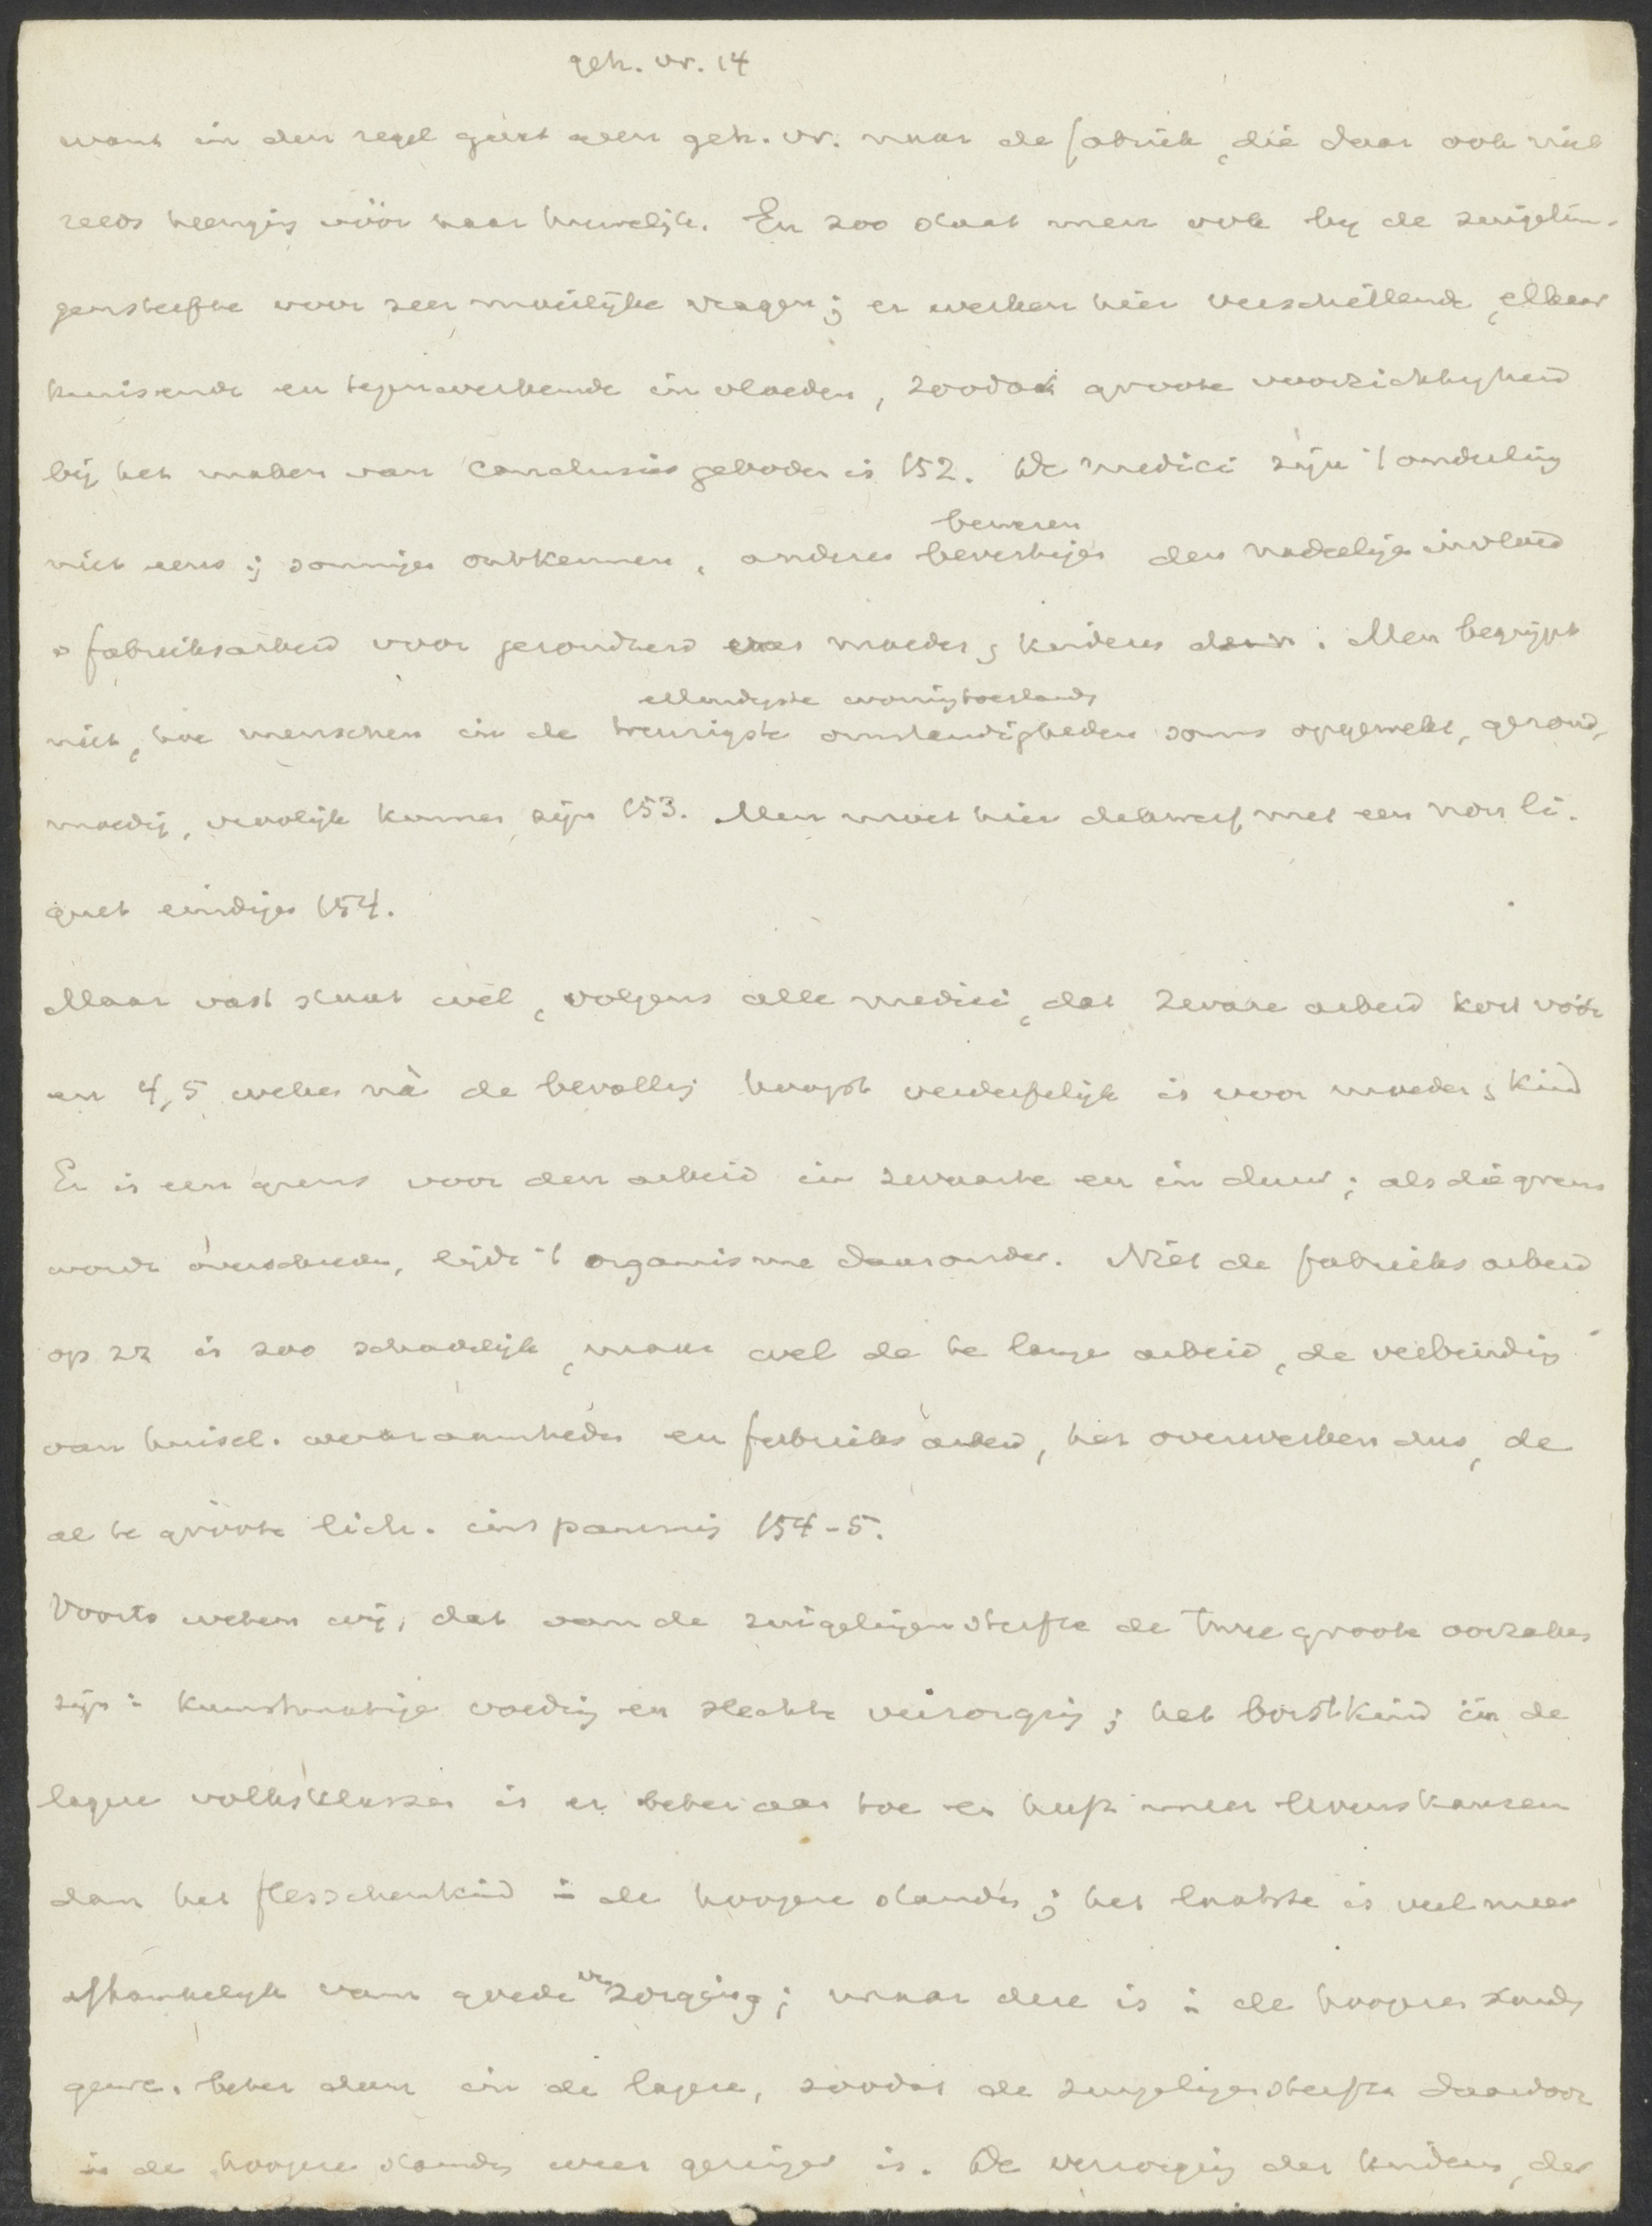 geh. vr. 14
want in den regel gaat geen geh. vr. naar de fabriek, die daar ook niet
reeds heenging vóór haar huwelijk. En zoo staat men ook bij de zuigelin-
gensterfte voor zeer moeilijke vragen; er werken hier verschillende, elkaar
kruisende en tegenwerkende invloeden, zoodat groote voorzichtigheid
bij het maken van conclusies geboden is 152. De medici zijn 't onderling
beweren
niet eens; sommigen ontkennen, anderen bevestigen den nadeeligen invloed
v fabrieksarbeid voor gezondheid moeder & kinderen. Men begrijpt
ellendigste woningtoestands
niet, hoe menschen in de treurigste omstandigheden soms opgewekt, gezond,
moedig, vroolijk kunnen zijn 153. Men moet hier dikwerf met een non li-
quet eindigen 154.
Maar vast staat wel, volgens alle medici, dat zware arbeid kort vóór
en 4, 5 weken nà de bevalling hoogst verderfelijk is voor moeder & kind
Er is een grens voor den arbeid in zwaarte en in duur; als die grens
wordt overschreden, lijdt 't organisme daaronder. Niet de fabrieksarbeid
op zz is zoo schadelijk, maar wel de te lange arbeid, de verbinding
van huisel. werkzaamheden en fabrieksarbeid, het overwerken dus, de
al te groote lich. inspanning 154-5.
Voorts weten wij, dat van de zuigelingensterfte de twee groote oorzaken
zijn: kunstmatige voeding en slechte verzorging; het borstkind in de
lagere volksklassen is er beter aan toe en heeft meer levenskansen
dan het flesschenkind in de hoogere standen; het laatste is veel meer
afhankelijk van goede verzorging; maar deze is in de hoogere standen
gew. beter dan in de lagere, zoodat de zuigelingensterfte daardoor
in de hoogere standen weer geringer is. De verzorging der kinderen, der